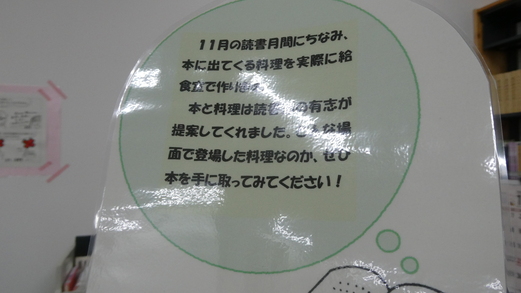 11月の読書月間にちなみ、
本に出てくる料理を実際に給
食室で作り
本と料理は読書 の有志が
提案してくれました。 な場
面で登場した料理なのか、ぜひ
本を手に取ってみてください！